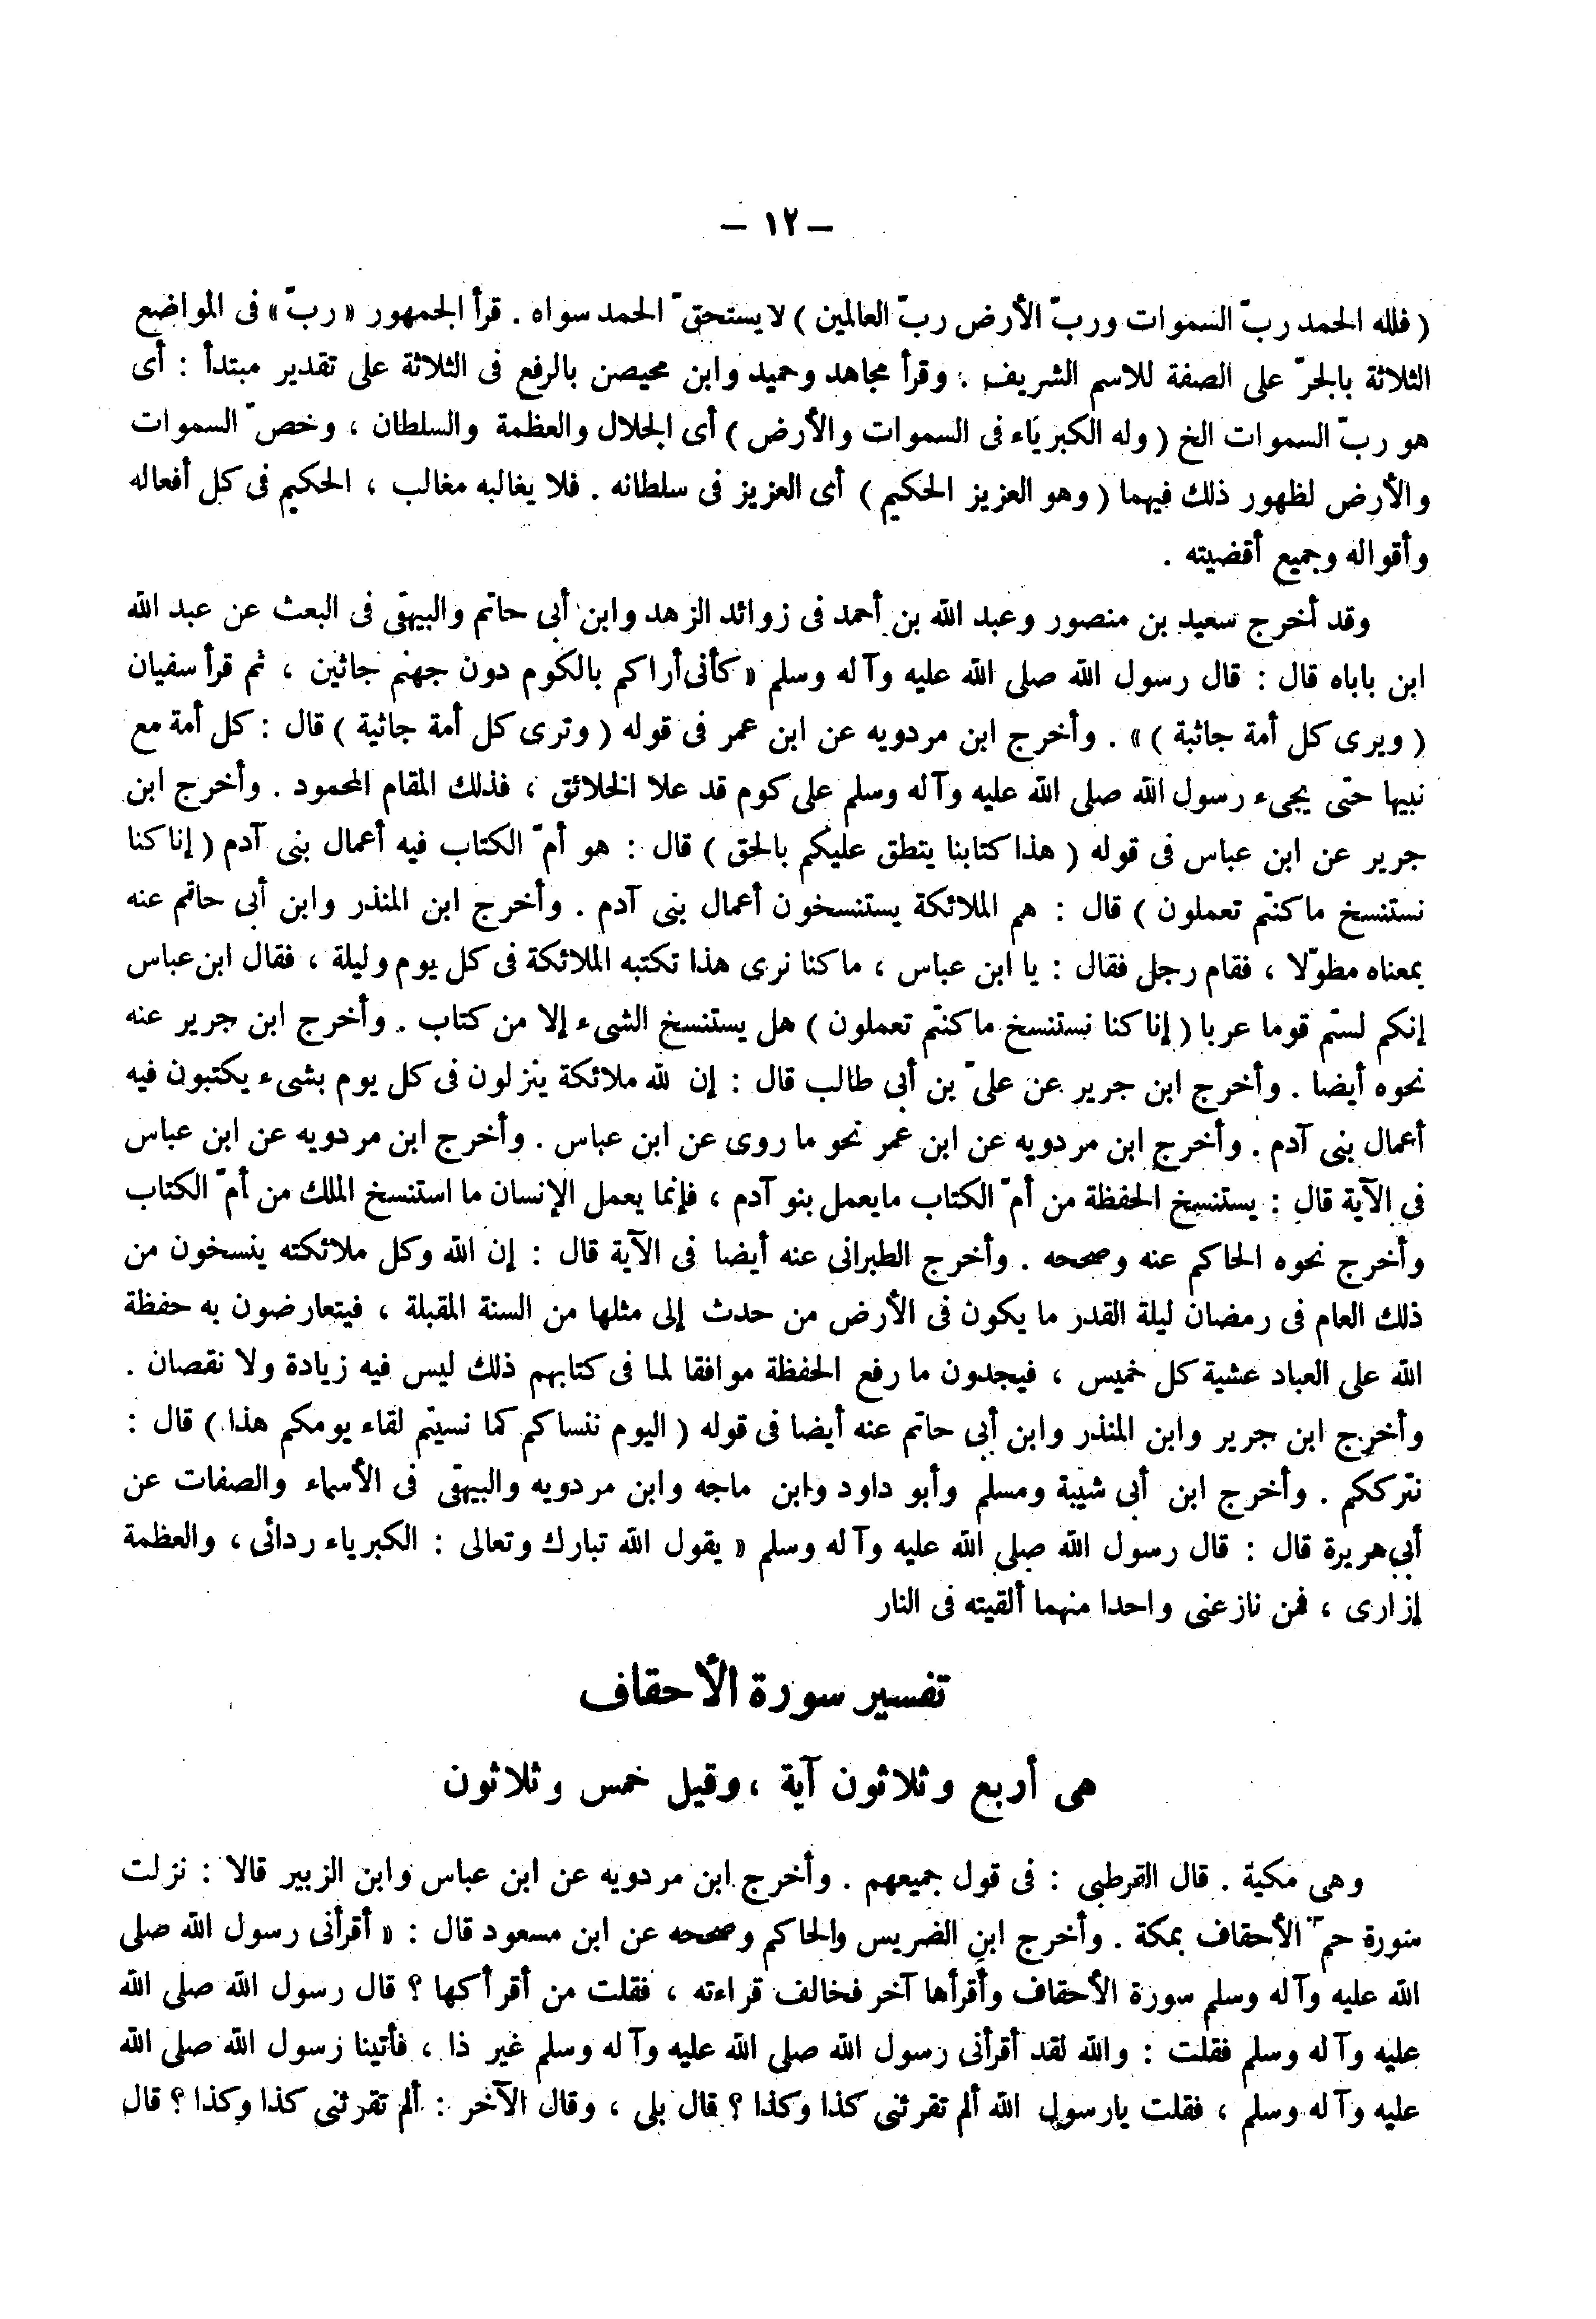 – ١٢ –
( فلله الحمد ربّ السموات وربّ الأرض ربّ العالمين ) لا يستحقّ الحمد سواه . قرأ الجمهور « ربّ » فى المواضع
الثلاثة بالجرّ على الصفة للاسم الشريف . وقرأ مجاهد وحميد وابن محيصن بالرفع فى الثلاثة على تقدير مبتدأ : أى
هو ربّ السموات الخ ( وله الكبرياء فى السموات والأرض ) أى الجلال والعظمة والسلطان ، وخصّ السموات
والأرض لظهور ذلك فيهما ( وهو العزيز الحكيم ) أى العزيز فى سلطانه . فلا يغالبه مغالب ، الحكيم فى كل أفعاله
وأقواله وجميع أقضيته .
وقد أخرج سعيد بن منصور وعبد الله بن أحمد فى زوائد الزهد وابن أبى حاتم والبيهقى فى البعث عن عبد الله
ابن باباه قال : قال رسول الله صلى الله عليه وآله وسلم « كأنى أراكم بالكوم دون جهنم جاثين ، ثم قرأ سفيان
( ويرى كل أمة جاثية ) » . وأخرج ابن مردويه عن ابن عمر فى قوله ( وترى كل أمة جاثية ) قال : كل أمة مع
نبيها حتى يجىء رسول الله صلى الله عليه وآله وسلم على كوم قد علا الخلائق ، فذلك المقام المحمود . وأخرج ابن
جرير عن ابن عباس فى قوله ( هذا كتابنا ينطق عليكم بالحق ) قال : هو أمّ الكتاب فيه أعمال بنى آدم ( إنا كنا
نستنسخ ما كنتم تعملون ) قال : هم الملائكة يستنسخون أعمال بنى آدم . وأخرج ابن المنذر وابن أبى حاتم عنه
بمعناه مطوّلا ، فقام رجل فقال : يا ابن عباس ، ما كنا نرى هذا تكتبه الملائكة فى كل يوم وليلة ، فقال ابن عباس
إنكم لستم قوما عربا ( إنا كنا نستنسخ ما كنتم تعملون ) هل يستنسخ الشىء إلا من كتاب . وأخرج ابن جرير عنه
نحوه أيضا . وأخرج ابن جرير عن علىّ بن أبى طالب قال : إن لله ملائكة ينزلون فى كل يوم بشىء يكتبون فيه
أعمال بنى آدم . وأخرج ابن مردويه عن ابن عمر نحو ما روى عن ابن عباس . وأخرج ابن مردويه عن ابن عباس
فى الآية قال : يستنسخ الحفظة من أمّ الكتاب مايعمل بنو آدم ، فإنما يعمل الإنسان ما استنسخ الملك من أمّ الكتاب
وأخرج نحوه الحاكم عنه وصححه . وأخرج الطبرانى عنه أيضا فى الآية قال : إن الله وكل ملائكته ينسخون من
ذلك العام فى رمضان ليلة القدر ما يكون فى الأرض من حدث إلى مثلها من السنة المقبلة ، فيتعارضون به حفظة
الله على العباد عشية كل خميس ، فيجدون ما رفع الحفظة موافقا لما فى كتابهم ذلك ليس فيه زيادة ولا نقصان .
وأخرج ابن جرير وابن المنذر وابن أبى حاتم عنه أيضا فى قوله ( اليوم ننساكم كما نسيتم لقاء يومكم هذا ) قال :
نترككم . وأخرج ابن أبى شيبة ومسلم وأبو داود وابن ماجه وابن مردويه والبيهقى فى الأسماء والصفات عن
أبى هريرة قال : قال رسول الله صلى الله عليه وآله وسلم « يقول الله تبارك وتعالى : الكبرياء ردائى ، والعظمة
إزارى ، فمن نازعنى واحدا منهما ألقيته فى النار
تفسير سورة الأحقاف
هى أربع وثلاثون آية ، وقيل خمس وثلاثون
وهى مكية . قال القرطبى : فى قول جميعهم . وأخرج ابن مردويه عن ابن عباس وابن الزبير قالا : نزلت
سورة حمۤ الأحقاف بمكة . وأخرج ابن الضريس والحاكم وصححه عن ابن مسعود قال : « أقرأنى رسول الله صلى
الله عليه وآله وسلم سورة الأحقاف وأقرأها آخر فخالف قراءته ، فقلت من أقرأكها ؟ قال رسول الله صلى الله
عليه وآله وسلم فقلت : والله لقد أقرأنى رسول الله صلى الله عليه وآله وسلم غير ذا ، فأتينا رسول الله صلى الله
عليه وآله وسلم ، فقلت يارسول الله ألم تقرئنى كذا وكذا ؟ قال بلى ، وقال الآخر : ألم تقرئنى كذا وكذا ؟ قال